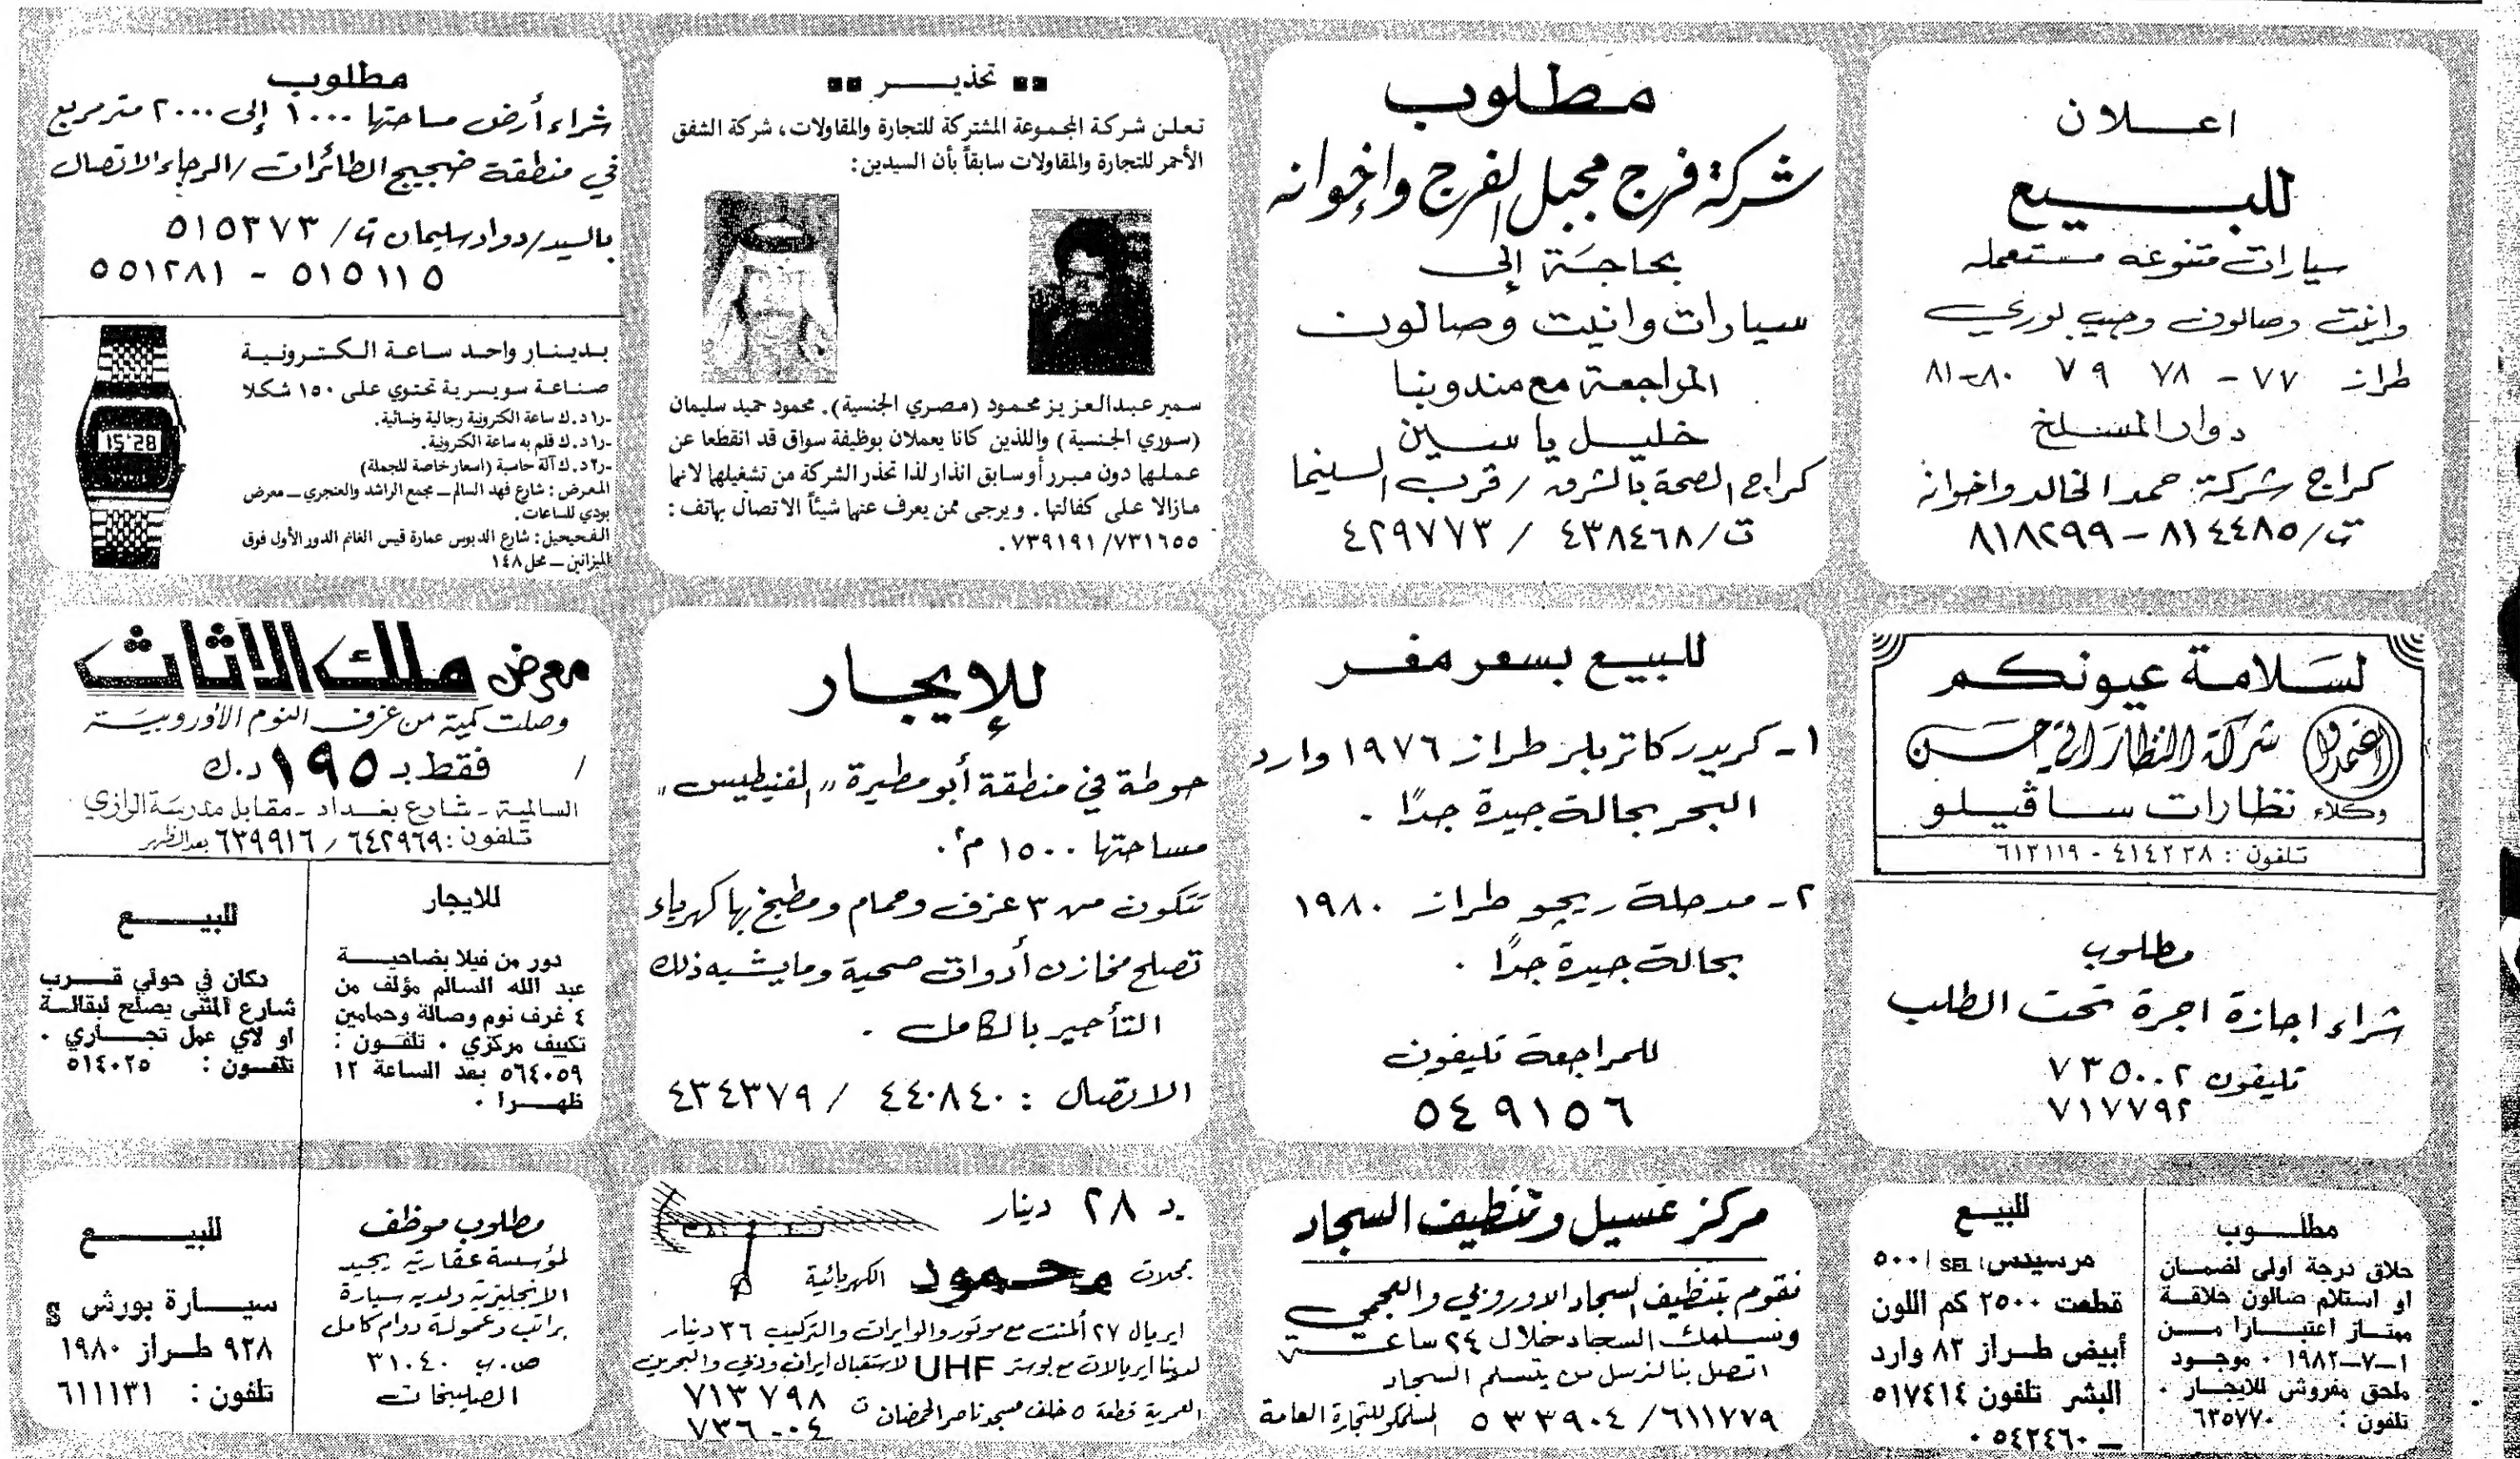 اعـــلان
للبـــــيع
سيارات متنوعه مستعمله
وانيت وصالون وجيب لوري
طراز ٧٧ - ٧٨ ٧٩ ٨٠-٨١
دوار المسلخ
كراج شركة حمد الخالد واخوانه
ت/٨١٤٤٨٥ - ٨١٨٢٩٩
مـطـلوب
شركة فرج مجبل الفرج واخوانه
بحاجة إلى
سيارات وانيت وصالون
المراجعة مع مندوبنا
خليل ياسين
كراج الصحة بالشرق / قرب السينما
ت/٤٣٨٤٦٨ / ٤٢٩٧٧٣
تحذيـــر
تعلن شركة المجموعة المشتركة للتجارة والمقاولات، شركة الشفق
الأحمر للتجارة والمقاولات سابقاً بأن السيدين:
سمير عبدالعزيز محمود (مصري الجنسية). محمود حميد سليمان
(سوري الجنسية) واللذين كانا يعملان بوظيفة سواق قد انقطعا عن
عملها دون مبرر أو سابق انذار لذا تحذر الشركة من تشغيلها لانها
مازالا على كفالتها. ويرجى ممن يعرف عنها شيئاً الاتصال بهاتف:
٧٣١٦٥٥/٧٣٩١٩١.
مطلوب
شراء أرض مساحتها ١٠٠٠ إلى ٢٠٠٠ متر مربع
في منطقة ضجيج الطائرات / الرجاء الاتصال
بالسيد/ دواد سليمان ت/ ٥١٥٣٧٣
٥١٥١١٥ - ٥٥١٢٨١
بدينار واحد ساعة الكترونية
صناعة سويسرية تحتوي على ١٥٠ شكلا
-ر١ د.ك ساعة الكترونية رجالية ونسائية.
-ر١ د.ك قلم به ساعة الكترونية.
-ر٢ د.ك آلة حاسبة (اسعار خاصة للجملة)
المعرض: شارع فهد السالم ـ مجمع الراشد والعنجري ـ معرض
بودي للساعات.
الفحيحيل: شارع الدبوس عمارة قيس الغانم الدور الأول فوق
الميزانين ـ محل ١٤٨
15:28
لسلامة عيونكم
اعتمدوا شركة النظاراتي حسن
وكلاء نظارات سافيلو
تلفون: ٤١٤٢٣٨ - ٦١٣١١٩
مطلوب
شراء اجازة اجرة تحت الطلب
تليفون ٧٣٥٠٠٢
٧١٧٧٩٢
للبيع بسعر مغر
١- كريدر كاتربلر طراز ١٩٧٦ وارد
البحر بحالة جيدة جدًا.
٢- مدحلة ريجو طراز ١٩٨٠
بحالة جيدة جدًا.
للمراجعة تليفون
٥٤٩١٥٦
للإيجـار
حوطة في منطقة أبو مطيرة "الفنيطيس"
مساحتها ١٥٠٠ م٢.
تتكون من ٣ غرف وحمام ومطبخ بها كهرباء
تصلح مخازن أدوات صحية وما يشبه ذلك
التأجير بالكامل.
الاتصال: ٤٤٠٨٤٠ / ٤٣٤٣٧٩
معرض ملك الاثاث
وصلت كمية من غرف النوم الأوروبية
فقط بـ ١٩٥ د.ك
السالمية ـ شارع بغداد ـ مقابل مدرسة الرازي
تلفون: ٦٤٢٩٦٩ / ٦٣٩٩١٦ بعد الظهر
للايجار
دور من فيلا بضاحيــة
عبد الله السالم مؤلف من
٤ غرف نوم وصالة وحمامين
تكييف مركزي. تلفــون:
٥٦٤٠٥٩ بعد الساعة ١٢
ظهـــرا.
للبيـــع
دكان في حولي قــرب
شارع المثنى يصلح لبقالــة
او لاي عمل تجــاري.
تلفــون: ٥١٤٠٢٥
مطلــوب
حلاق درجة أولى لضمــان
او استلام صالون حلاقــة
ممتــاز اعتبـــارا مــن
١-٧-١٩٨٢. موجــود
ملحق مفروش للايجــار.
تلفون: ٦٣٥٧٧٠
للبيــع
مرسيدس SEL ٥٠٠
قطعت ٢٥٠٠ كم اللون
أبيض طــراز ٨٢ وارد
البشر تلفون ٥١٧٤١٤
ـ ٥٤٢٤٦٠.
مركز غسيل وتنظيف السجاد
نقوم بتنظيف السجاد الاوروبي والعجمي
ونسلمك السجاد خلال ٢٤ ساعــة
اتصل بنا لنرسل من يتسلم السجاد
٦١١٧٧٩ / ٥٣٣٩٠٤ للتجارة العامة
بـ ٢٨ دينار
محلات محمود الكهربائية
ايريال ٢٧ ألمنت مع موتور والوايرات والتركيب ٣٦ دينار
لدينا ايريالات مع بوستر UHF لاستقبال ايران ودبي والبحرين
العمرية قطعة ٥ خلف مسجد ناصر الحمضان ت ٧١٣٧٩٨
٧٣٦٠٠٤
مطلوب موظف
لمؤسسة عقارية يجيد
الانجليزية ولديه سيارة
براتب وعمولة دوام كامل
ص.ب ٣١٠٤٠
الصليبخات
للبيـــع
سيــارة بورش S
٩٢٨ طــراز ١٩٨٠
تلفون: ٦١١١٣١